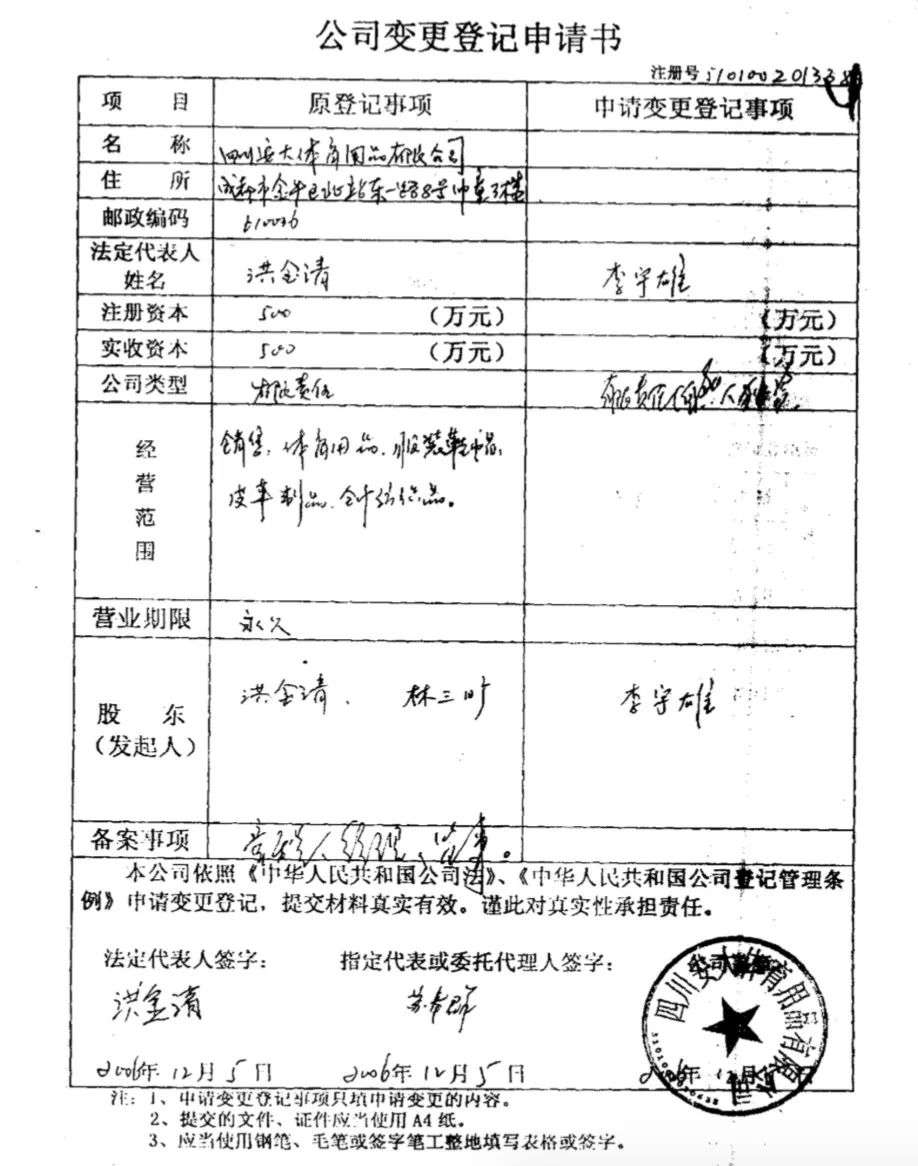 公司变更登记申请书
注册号 5101002013
项 目 原登记事项 申请变更登记事项
名 称 四川安大体育用品有限公司
住 所 成都市金牛区北站东一路8号
邮政编码 610036
法定代表人
姓名 洪金清 李宇雄
注册资本 500 (万元) (万元)
实收资本 500 (万元) (万元)
公司类型 有限责任 有限责任
经 销售:体育用品、服装鞋帽、
营 皮革制品、针纺织品。
范
围
营业期限 永久
股 东 洪金清、 林三 李宇雄
(发起人)
备案事项 经理、监事。
本公司依照《中华人民共和国公司法》、《中华人民共和国公司登记管理条
例》申请变更登记,提交材料真实有效。谨此对真实性承担责任。
法定代表人签字: 指定代表或委托代理人签字: 公司盖章
洪金清 苏 群 四川安大体育用品有限公司
2006年12月5日 2006年12月5日 2006年12月 日
注:1、申请变更登记事项只填申请变更的内容。
2、提交的文件、证件应当使用A4纸。
3、应当使用钢笔、毛笔或签字笔工整地填写表格或签字。